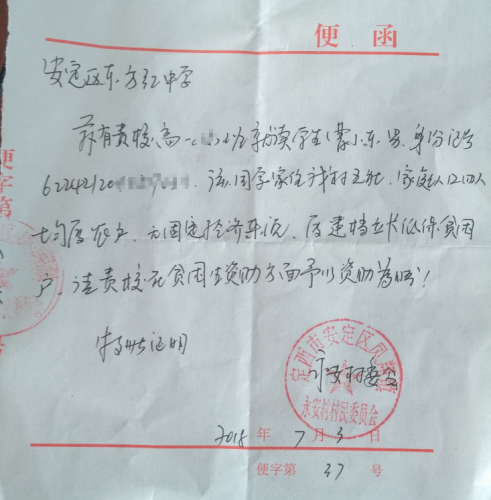 便 函
安定区东方红中学
兹有贵校高一(班就读学生(蒙小东.男.身份证号
62242120 .该同学家住我村五社,家庭人口四人
均属农户,无固定经济来源,属建档立卡低保贫困
户,请贵校在贫困生资助方面予以资助为盼!
特此证明
永安村委会
定西市安定区凤翔镇
永安村村民委员会
2018年7月3日
便字第 37 号
便字第